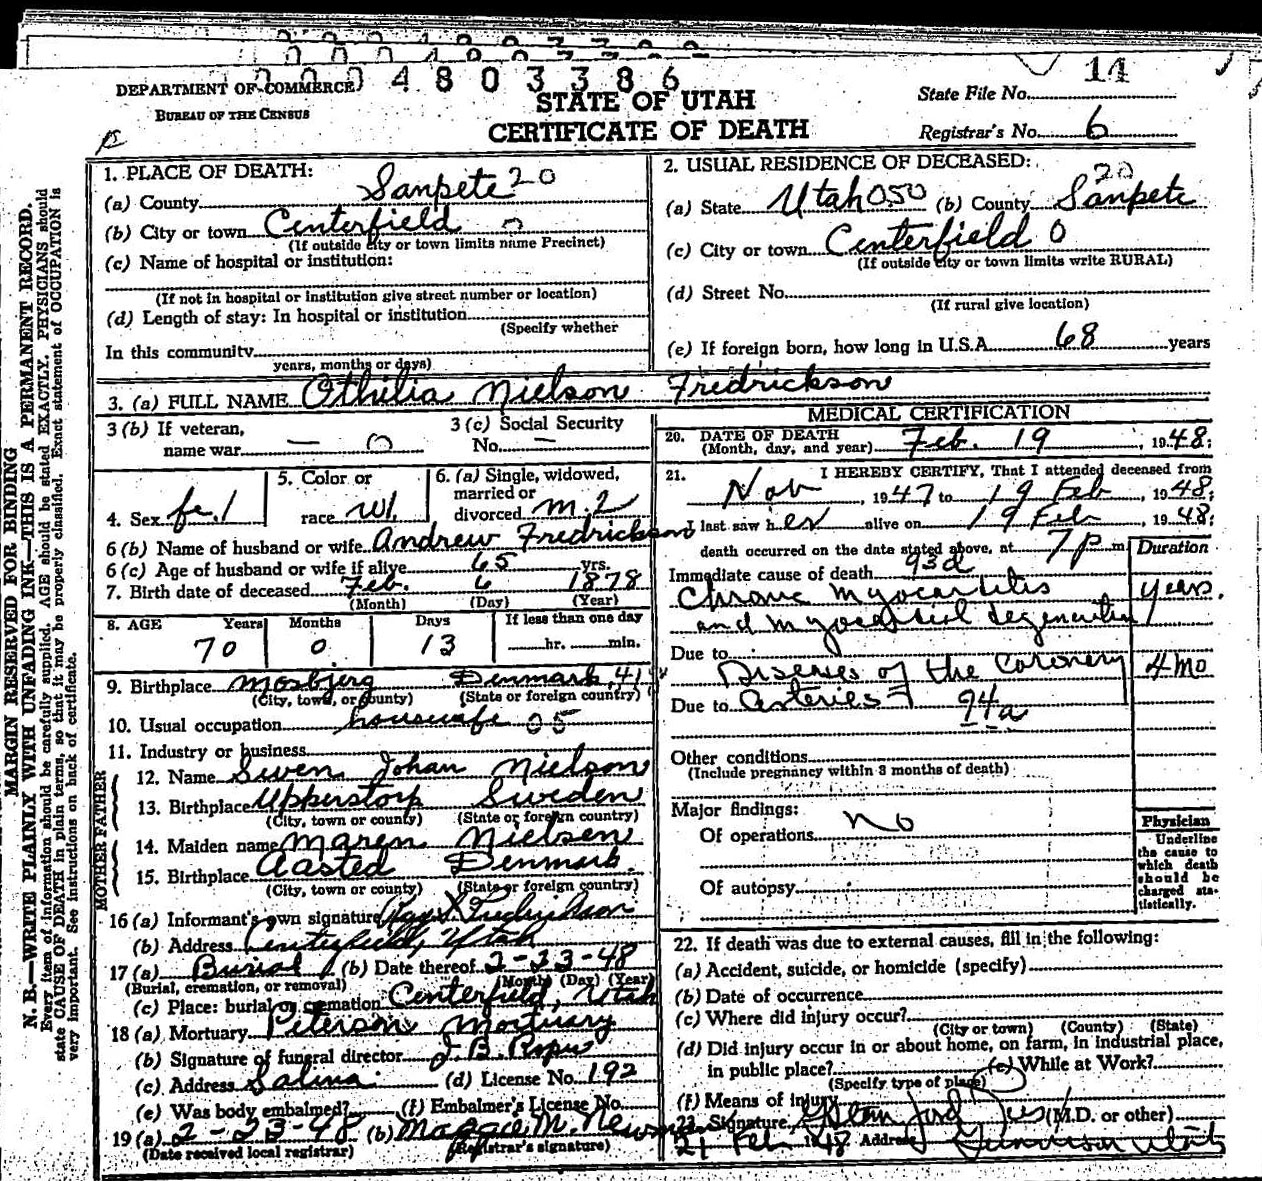 0004803386
11
DEPARTMENT OF COMMERCE
BUREAU OF THE CENSUS
STATE OF UTAH
CERTIFICATE OF DEATH
State File No.
Registrar's No. 6
MARGIN RESERVED FOR BINDING
N. B.—WRITE PLAINLY WITH UNFADING INK—THIS IS A PERMANENT RECORD.
Every item of information should be carefully supplied. AGE should be stated EXACTLY. PHYSICIANS should
state CAUSE OF DEATH in plain terms, so that it may be properly classified. Exact statement of OCCUPATION is
very important. See instructions on back of certificate.
1. PLACE OF DEATH:
(a) County Sanpete 20
(b) City or town Centerfield 0
(If outside city or town limits name Precinct)
(c) Name of hospital or institution:
(If not in hospital or institution give street number or location)
(d) Length of stay: In hospital or institution
(Specify whether
In this community
years, months or days)
2. USUAL RESIDENCE OF DECEASED:
20
(a) State Utah 050 (b) County Sanpete
(c) City or town Centerfield 0
(If outside city or town limits write RURAL)
(d) Street No.
(If rural give location)
(e) If foreign born, how long in U.S.A. 68 years
3. (a) FULL NAME Othilia Nielson Fredrickson
3 (b) If veteran,
name war — 0
3 (c) Social Security
No. —
4. Sex fe. 1
5. Color or
race W1
6. (a) Single, widowed,
married or
divorced m. 2
6 (b) Name of husband or wife Andrew Fredrickson
6 (c) Age of husband or wife if alive 65 yrs.
7. Birth date of deceased Feb. 6 1878
(Month) (Day) (Year)
8. AGE Years Months Days If less than one day
70 0 13 hr. min.
9. Birthplace Mosbjerg Denmark 41
(City, town, or county) (State or foreign country)
10. Usual occupation housewife 05
11. Industry or business
FATHER
12. Name Swen Johan Nielson
13. Birthplace Upperstorp Sweden
(City, town or county) (State or foreign country)
MOTHER
14. Maiden name Maren Nielsen
15. Birthplace Aasted Denmark.
(City, town or county) (State or foreign country)
16 (a) Informant's own signature Fredrickson
(b) Address Centerfield, Utah
17 (a) Burial 1 (b) Date thereof 2-23-48
(Burial, cremation, or removal) (Month) (Day) (Year)
(c) Place: burial or cremation Centerfield, Utah
18 (a) Mortuary Peterson Mortuary
(b) Signature of funeral director J. B. Roper
(c) Address Salina (d) License No. 192
(e) Was body embalmed? (f) Embalmer's License No.
19 (a) 2-23-48 (b) M.
(Date received local registrar) (Registrar's signature)
MEDICAL CERTIFICATION
20. DATE OF DEATH
(Month, day, and year) Feb. 19, 1948;
21. I HEREBY CERTIFY, That I attended deceased from
Nov, 1947 to 19 Feb, 1948;
I last saw her alive on 19 Feb, 1948;
death occurred on the date stated above, at 7 p m
Duration
Immediate cause of death 93d
Chronic myocarditis years.
and myocardial degeneration
Due to Diseases of the coronery 4 mo
Due to arteries 94a
Other conditions
(Include pregnancy within 3 months of death)
Major findings:
Of operations no
Of autopsy
Physician
Underline
the cause to
which death
should be
charged sta-
tistically.
22. If death was due to external causes, fill in the following:
(a) Accident, suicide, or homicide (specify)
(b) Date of occurrence
(c) Where did injury occur?
(City or town) (County) (State)
(d) Did injury occur in or about home, on farm, in industrial place,
in public place? (e) While at Work?
(Specify type of place)
(f) Means of injury
23. Signature (M.D. or other)
21 Feb 1948 Address Gunnison Utah